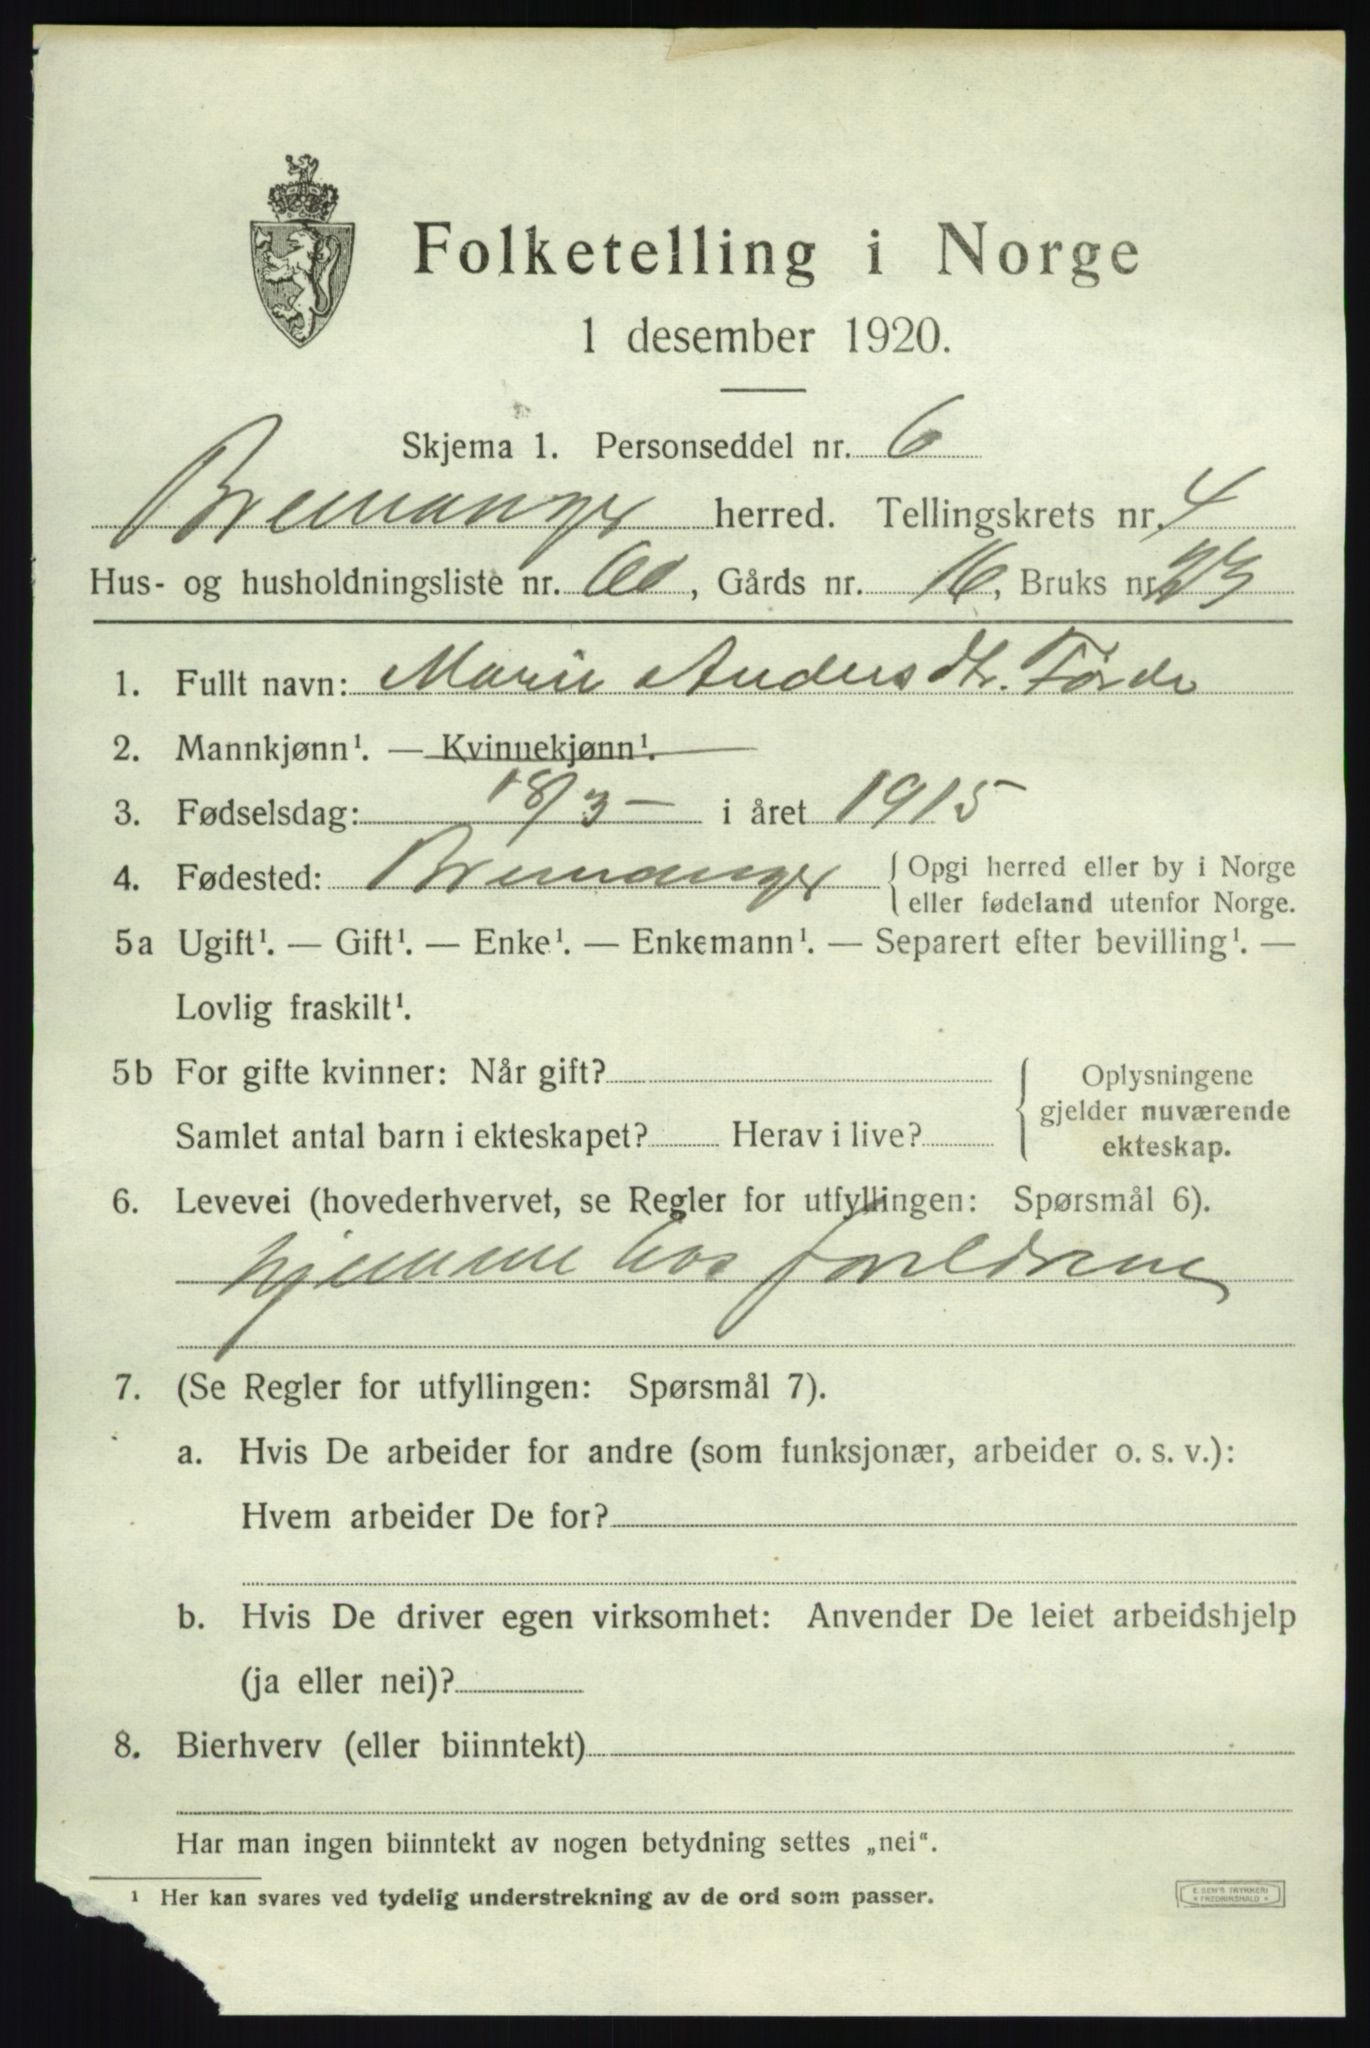 Folketelling i Norge
1 desember 1920.
Skjema 1. Personseddel nr. 6
Bremanger herred. Tellingskrets nr. 4
Hus- og husholdningsliste nr. 60, Gårds nr. 16, Bruks nr. 23
1. Fullt navn: Marie Andersdtr. Förde
2. Mannkjønn¹. — Kvinnekjønn¹.
3. Fødselsdag: 18/3 – i året 1915
4. Fødested: Bremanger { Opgi herred eller by i Norge
eller fødeland utenfor Norge.
5a Ugift¹. — Gift¹. — Enke¹. — Enkemann¹. — Separert efter bevilling¹. —
Lovlig fraskilt¹.
5b For gifte kvinner: Når gift? { Oplysningene
gjelder nuværende
Samlet antal barn i ekteskapet? Herav i live?
ekteskap.
6. Levevei (hovederhvervet, se Regler for utfyllingen: Spørsmål 6).
hjemme hos foreldrene
7. (Se Regler for utfyllingen: Spørsmål 7).
a. Hvis De arbeider for andre (som funksjonær, arbeider o. s. v.):
Hvem arbeider De for?
b. Hvis De driver egen virksomhet: Anvender De leiet arbeidshjelp
(ja eller nei)?
8. Bierhverv (eller biinntekt)
Har man ingen biinntekt av nogen betydning settes „nei“.
¹ Her kan svares ved tydelig understrekning av de ord som passer.
E. SEM'S TRYKKERI
* FREDRIKSHALD *